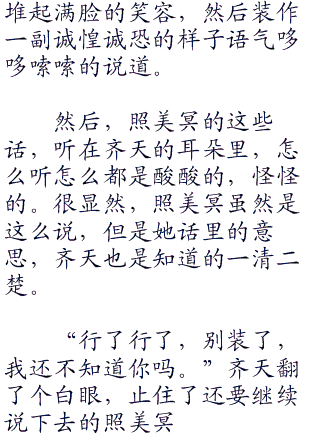 堆起满脸的笑容，然后装作
一副诚惶诚恐的样子语气哆
哆嗦嗦的说道。
然后，照美冥的这些
话，听在齐天的耳朵里，怎
么听怎么都是酸酸的，怪怪
的。很显然，照美冥虽然是
这么说，但是她话里的意
思，齐天也是知道的一清二
楚。
“行了行了，别装了，
我还不知道你吗。”齐天翻
了个白眼，止住了还要继续
说下去的照美冥